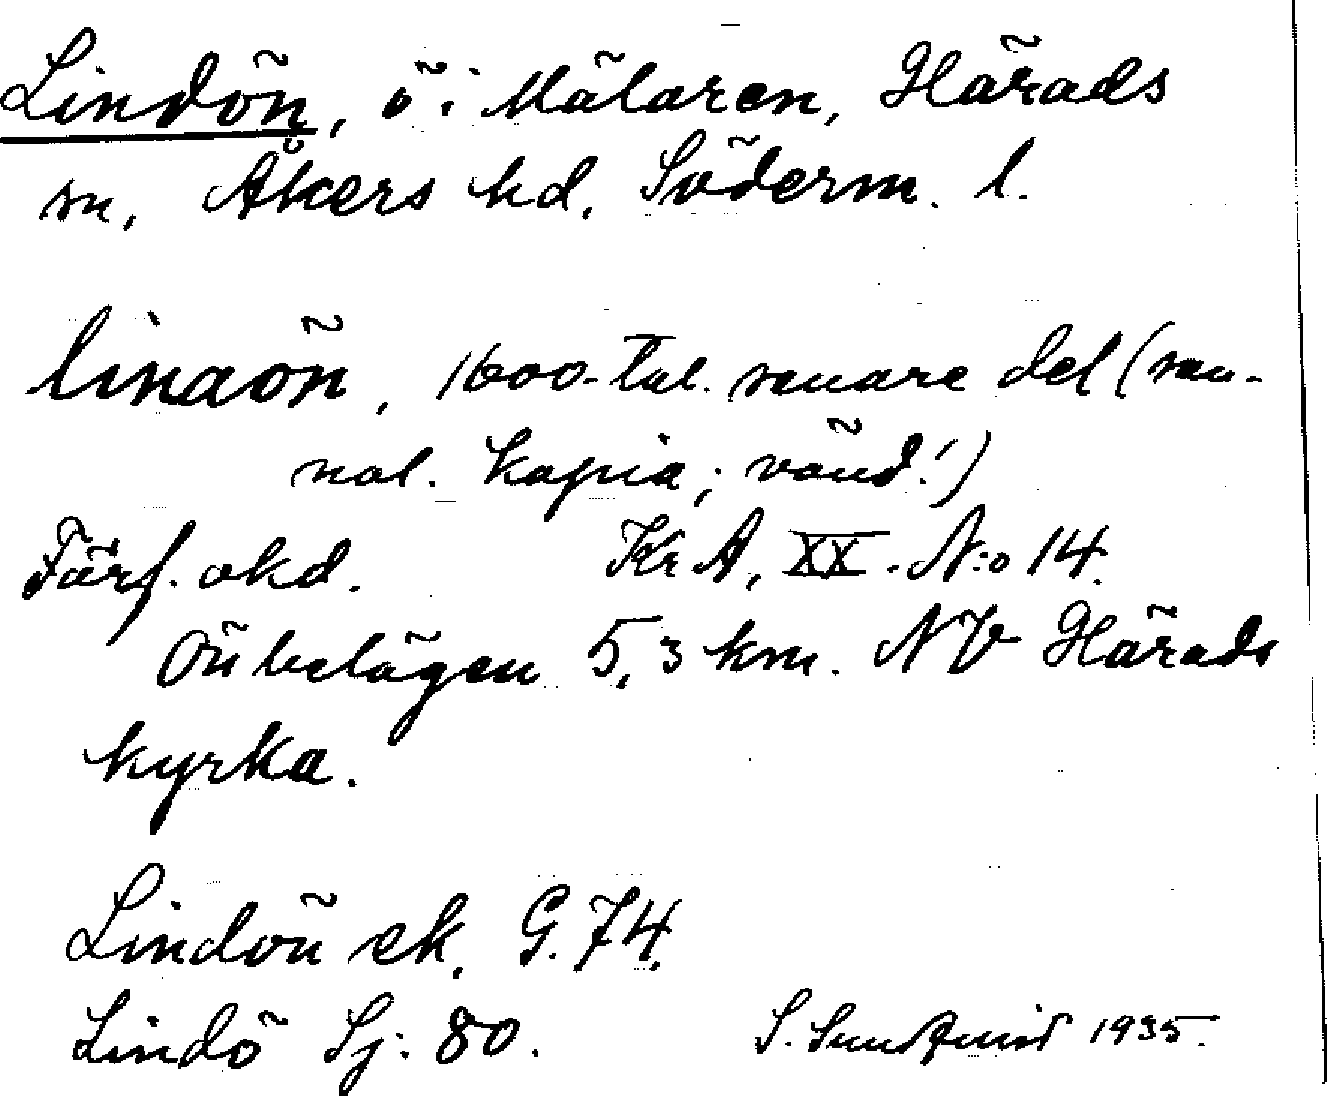 Lindön, ö i Mälaren, Härads
sn, Åkers hd, Söderm. l.
linaön, 1600-tal. senare del (san-
nol. kopia; vänd!)
Förf. okd. KrA, XX. N:o 14.
Ön belägen 5,3 km. NV Härads
kyrka.
Lindön ek, G. 74.
Lindö Sj: 80. S. Sundquist 1935.